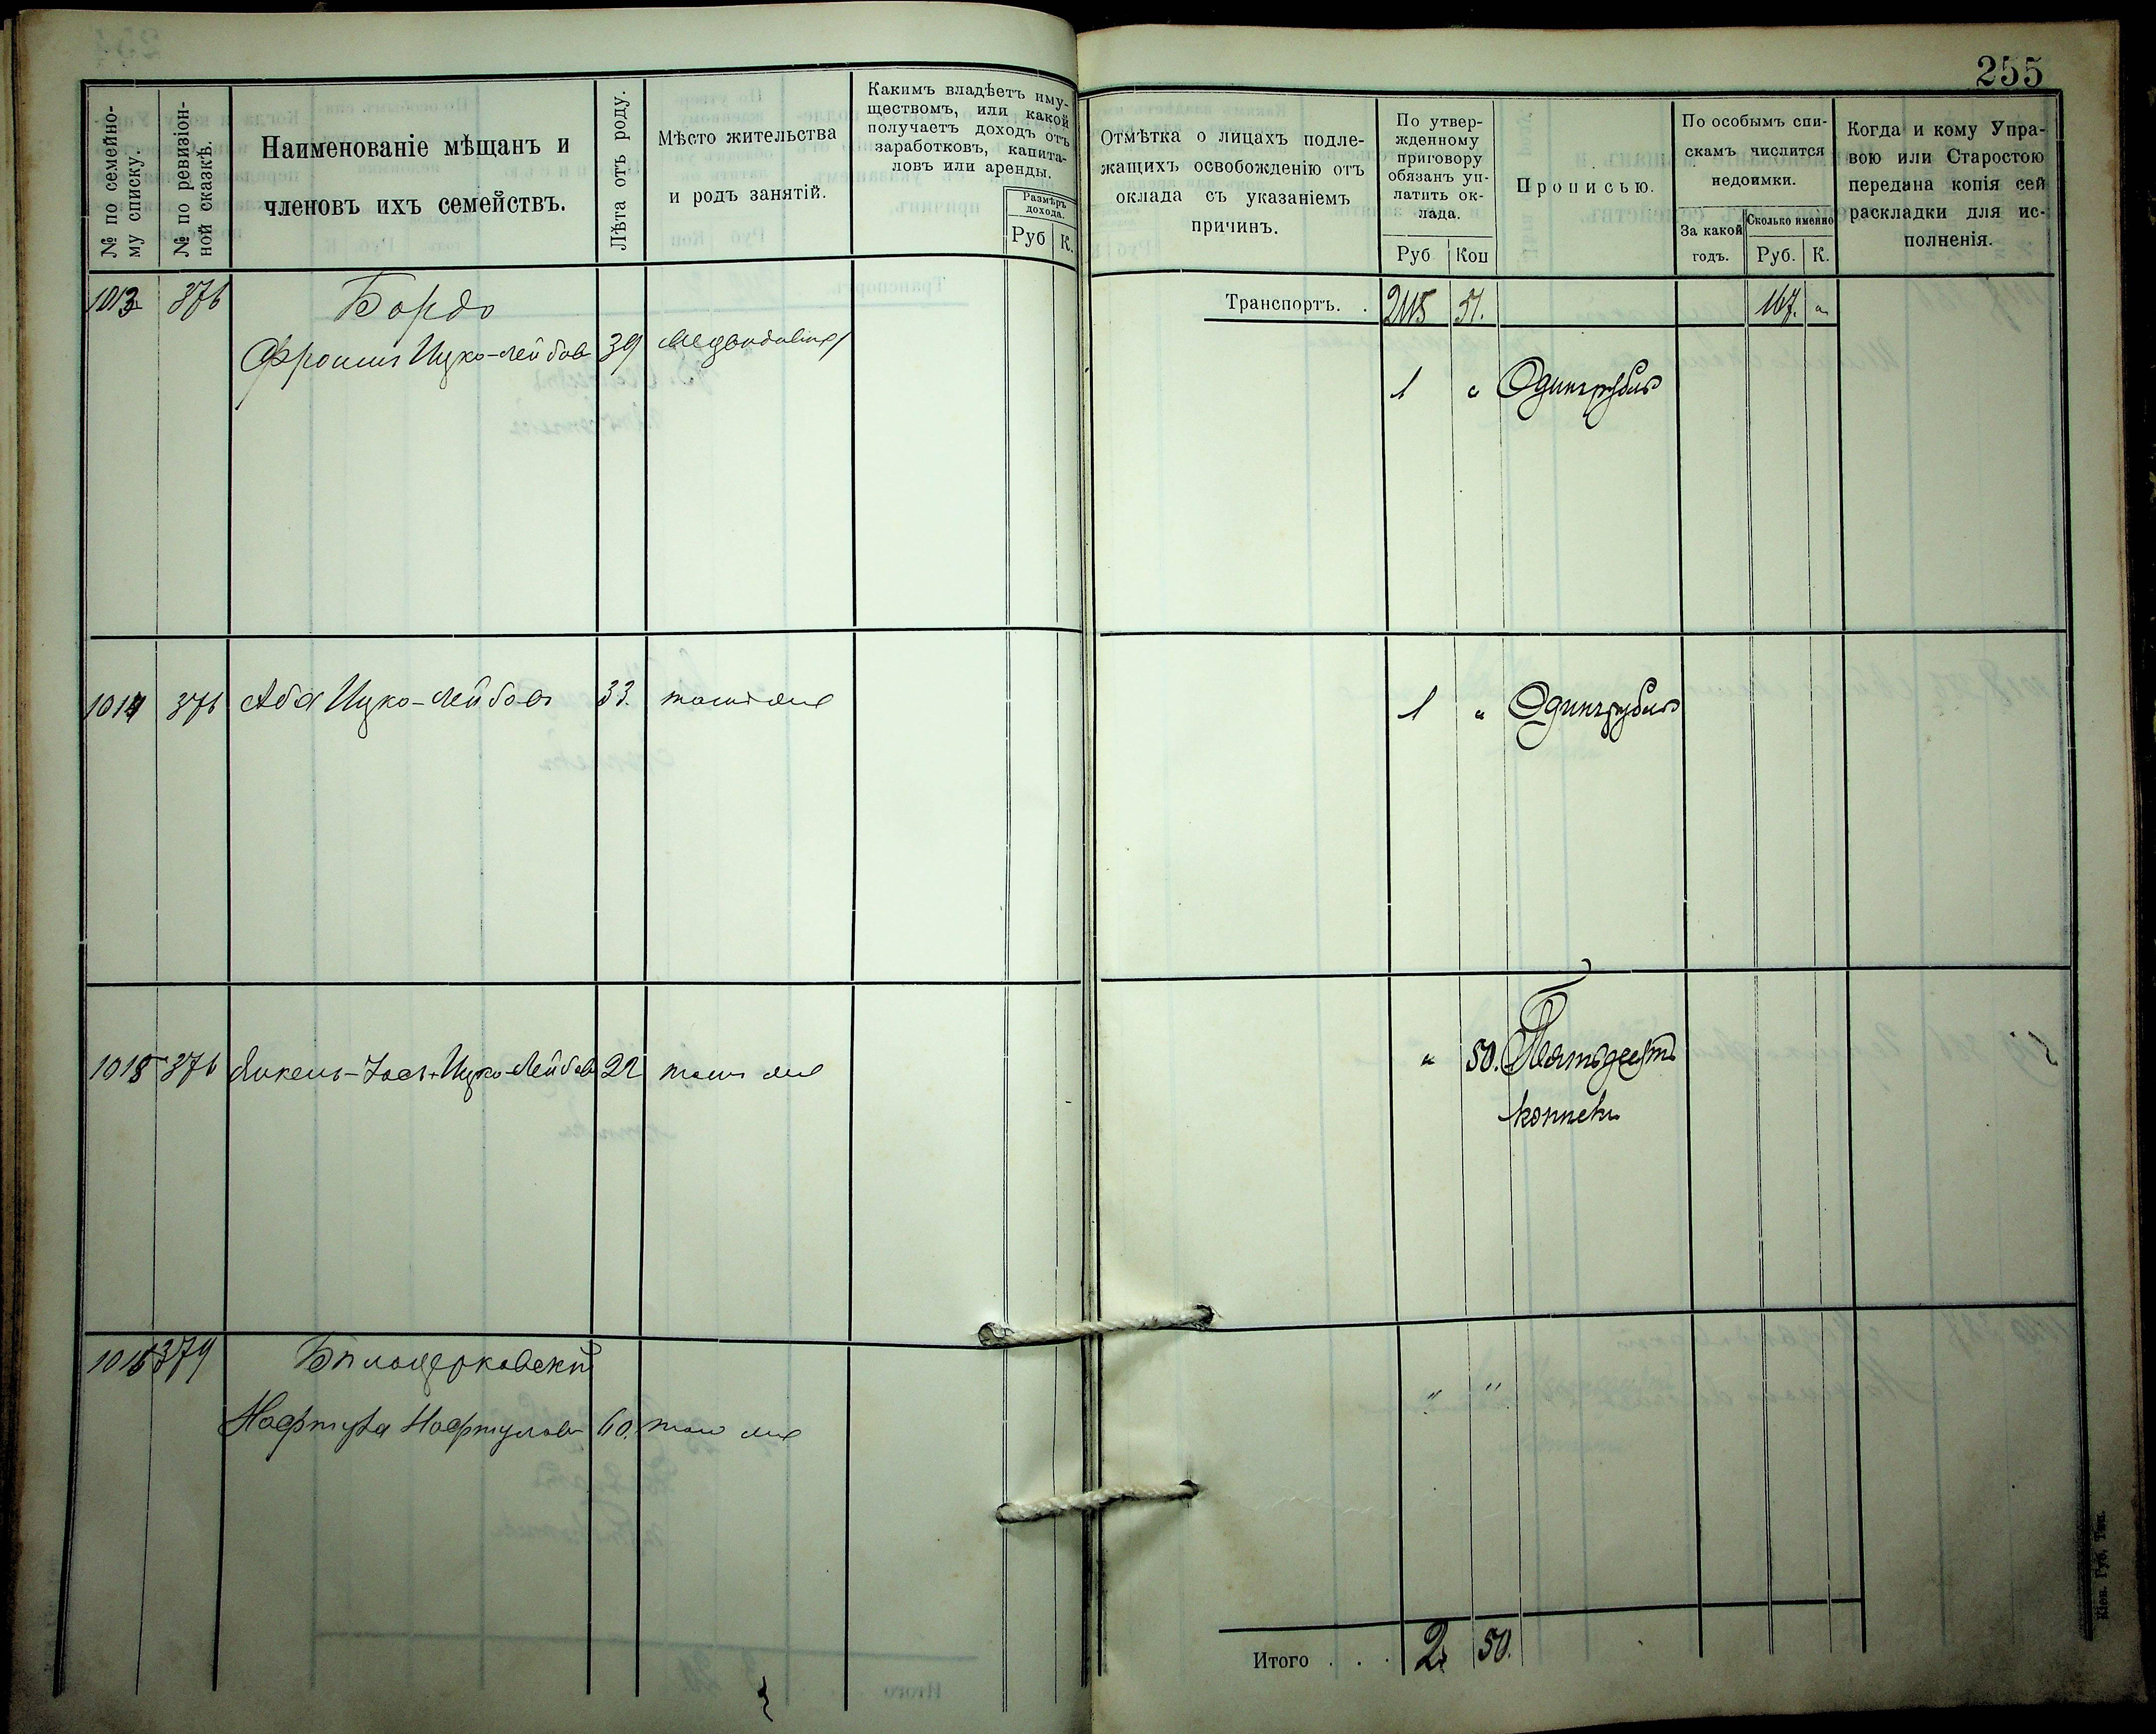 255
№ по семейно-
му списку.
№ по ревизіон-
ной сказкѣ.
Наименованіе мѣщанъ и
членовъ ихъ семействъ.
Лѣта отъ роду.
Мѣсто жительства
и родъ занятій.
Какимъ владѣетъ иму-
ществомъ, или какой
получаетъ доходъ отъ
заработковъ, капита-
ловъ или аренды.
Размѣръ
дохода.
Руб К.
Отмѣтка о лицахъ подле-
жащихъ освобожденію отъ
оклада съ указаніемъ
причинъ.
По утвер-
жденному
приговору
обязанъ уп-
латить ок-
лада.
Руб Коп
Прописью.
По особымъ спи-
скамъ числится
недоимки.
За какой
годъ.
Сколько именно
Руб. К.
Когда и кому Упра-
вою или Старостою
передана копія сей
раскладки для ис-
полненія.
Транспортъ. . 2115 51. 167. "
1013 376 Бордо
Фроимъ Ицко-Лейбовъ 39
1 " Одинъ рубль
1014 376 Аба Ицко-Лейбовъ 33. тамъ же 1 " Одинъ рубль
1015 376 Янкель-Іосъ Ицко-Лейбовъ 22 тамъ же " 50. Пятьдесятъ
копѣекъ
1016 379 Бѣлоцерковскій
Нафтула Нафтуловъ 60. тамъ же " "
Итого . . . 2 50.
Кіев. Губ. Тип.